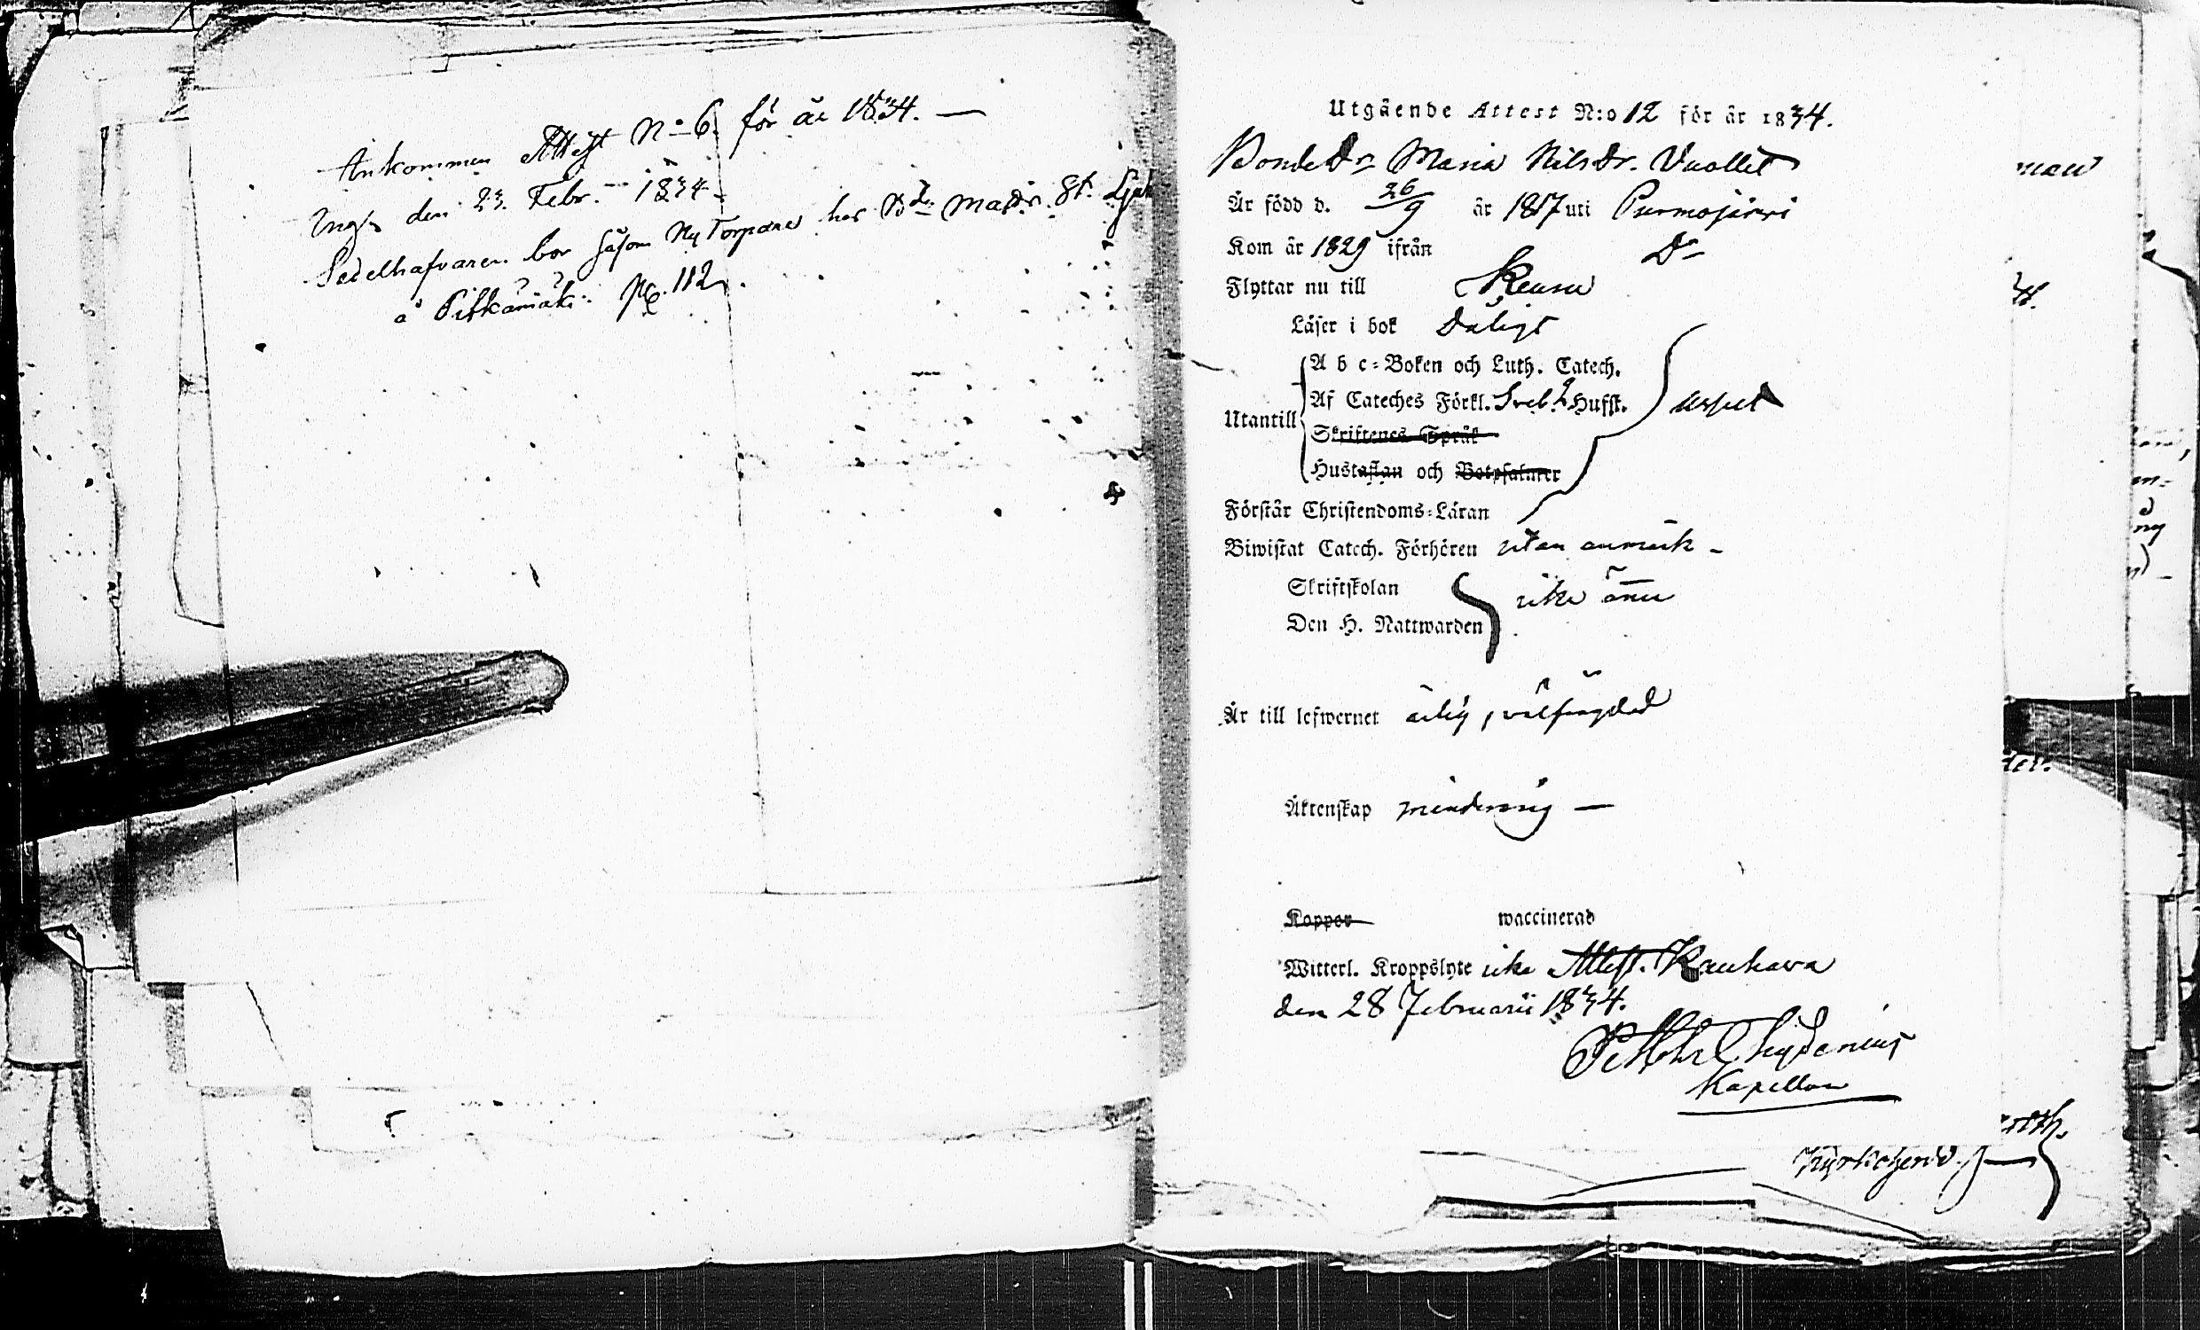 Ankommen Attest No 6. för år 1834. —
den 23. Febr. 1834
Sedelhafvaren bor såsom Ny Torpare hos
å Pitkämäki pg. 112.
Utgående Attest N:o 12 för år 1834.
Bonde Dr Maria Nilsdr. Vuollet
Är född d. 26/9 år 1817 uti Purmojärvi
Kom år 1829 ifrån Do
Flyttar nu till
Läser i bok Dåligt
Utantill
A b c-Boken och Luth. Catech.
Af Cateches Förkl. Sveb. 2 Hufst.
Skriftenes Språk
Hustaflan och Botpsalmer
Förstår Christendoms-Läran
Biwistat Catech. Förhören utan anmärk -
Skriftskolan
Den H. Nattwarden
icke ännu
Är till lefwernet ärlig, välfrägdad
Äktenskap minderårig —
Koppor waccinerad
Witterl. Kroppslyte icke Attest. Kauhava
den 28 Februarii 1834.
Chydenius
Kapellan